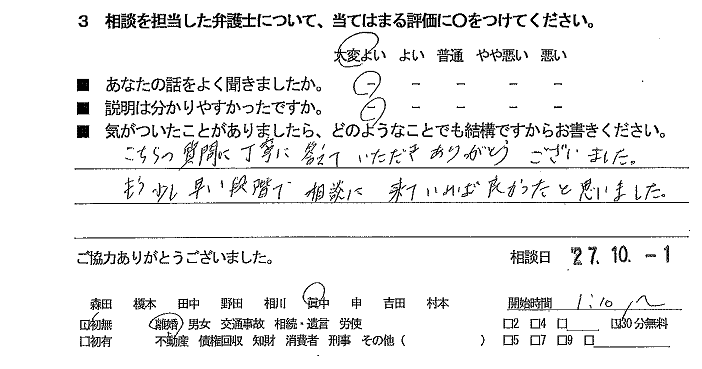 3 相談を担当した弁護士について、当てはまる評価に○をつけてください。
大変よい よい 普通 やや悪い 悪い
■ あなたの話をよく聞きましたか。 － － － － －
■ 説明は分かりやすかったですか。 － － － － －
■ 気がついたことがありましたら、どのようなことでも結構ですからお書きください。
こちらの質問に丁寧に答えていただきありがとうございました。
もう少し早い段階で相談に来ていれば良かったと思いました。
ご協力ありがとうございました。 相談日 27.10.-1
森田 榎本 田中 野田 相川 眞中 申 吉田 村本 開始時間 1:10〜
□初無 離婚 男女 交通事故 相続・遺言 労使 □2 □4 □ □30分無料
□初有 不動産 債権回収 知財 消費者 刑事 その他( ) □5 □7 □9 □